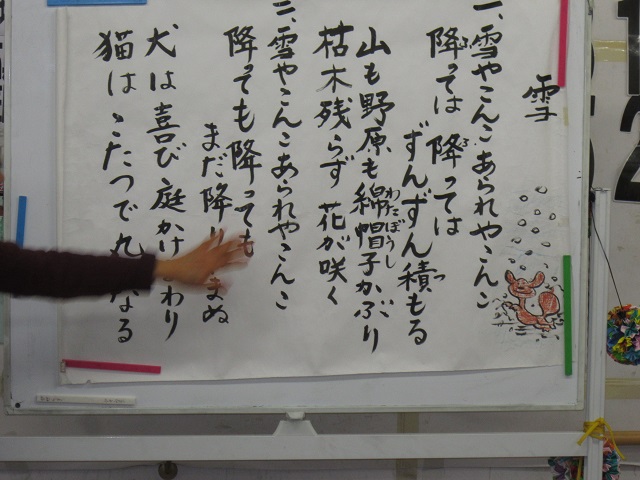 雪
一、雪やこんこあられやこんこ
降っては降っては
ずんずん積もる
つ
山も野原も綿帽子かぶり
わたぼうし
枯木残らず花が咲く
二、雪やこんこあられやこんこ
降っても降っても
まだ降りまぬ
犬は喜び庭かけわり
猫はこたつで丸なる